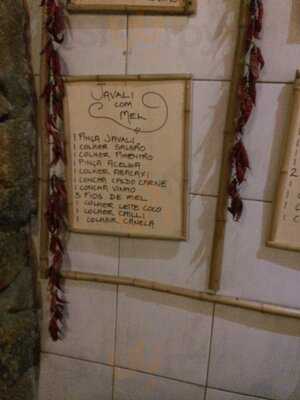 JAVALI
COM
MEL
1 PINÇA JAVALI
1 COLHER SALSÃO
1 COLHER PIMENTÃO
1 PINÇA ACELGA
1 COLHER ABACAXI
1 CONCHA CALDO CARNE
1 CONCHA VINHO
3 FIOS DE MEL
1 COLHER LEITE COCO
1 COLHER CHILLI
1 COLHER CANELA